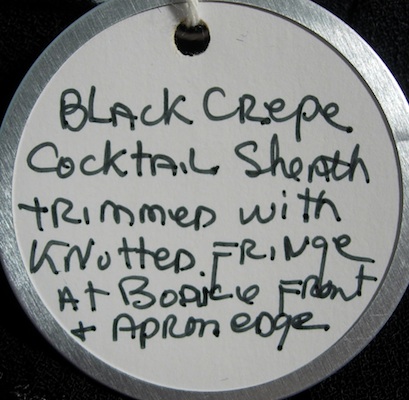 BLACK CRepe
COCKTAIL SheATH
TRIMMED WITH
KNOTTED FRINGE
AT BODICE FRONT
+ APRON EDGE